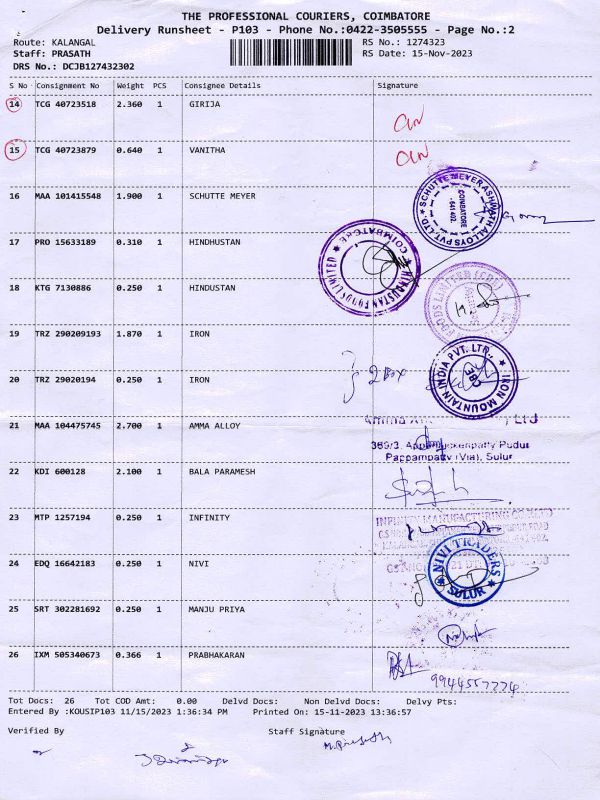 THE PROFESSIONAL COURIERS, COIMBATORE
Delivery Runsheet - P103 - Phone No.:0422-3505555 - Page No.:2
Route: KALANGAL
RS No.: 1274323
Staff: PRASATH
RS Date: 15-Nov-2023
DRS No.: DCJB127432302
S No Consignment No Weight PCS Consignee Details Signature
14 TCG 40723518 2.360 1 GIRIJA
15 TCG 40723879 0.640 1 VANITHA
16 MAA 101415548 1.900 1 SCHUTTE MEYER
SCHUTTE MEYER ASHWATH ALLOYS PVT. LTD.
COIMBATORE
641 402.
17 PRO 15633189 0.310 1 HINDHUSTAN
HINDUSTAN FOODS LIMITED
COIMBATORE
18 KTG 7130886 0.250 1 HINDUSTAN
FOODS LIMITED
19 TRZ 290209193 1.870 1 IRON
20 TRZ 29020194 0.250 1 IRON
2 Box
IRON MOUNTAIN INDIA PVT. LTD.,
CBE
21 MAA 104475745 2.700 1 AMMA ALLOY
Amma Ltd
369/3, Pudur
Pappampatty (Via), Sulur
22 KDI 600128 2.100 1 BALA PARAMESH
23 MTP 1257194 0.250 1 INFINITY
MANUFACTURING
24 EDQ 16642183 0.250 1 NIVI
NIVI TRADERS
SULUR
25 SRT 302281692 0.250 1 MANJU PRIYA
26 IXM 505340673 0.366 1 PRABHAKARAN
9944557774
Tot Docs: 26 Tot COD Amt: 0.00 Delvd Docs: Non Delvd Docs: Delvy Pts:
Entered By :KOUSIP103 11/15/2023 1:36:34 PM Printed On: 15-11-2023 13:36:57
Verified By Staff Signature
M. Prasath